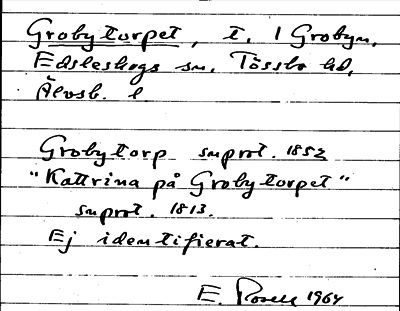 Grobytorpet, t. 1 Grobyn,
Edsleskogs sn, Tössbo hd,
Älvsb. l.
Grobytorp snprot. 1852
"Kattrina på Grobytorpet"
snprot. 1813.
Ej identifierat.
E. 1964